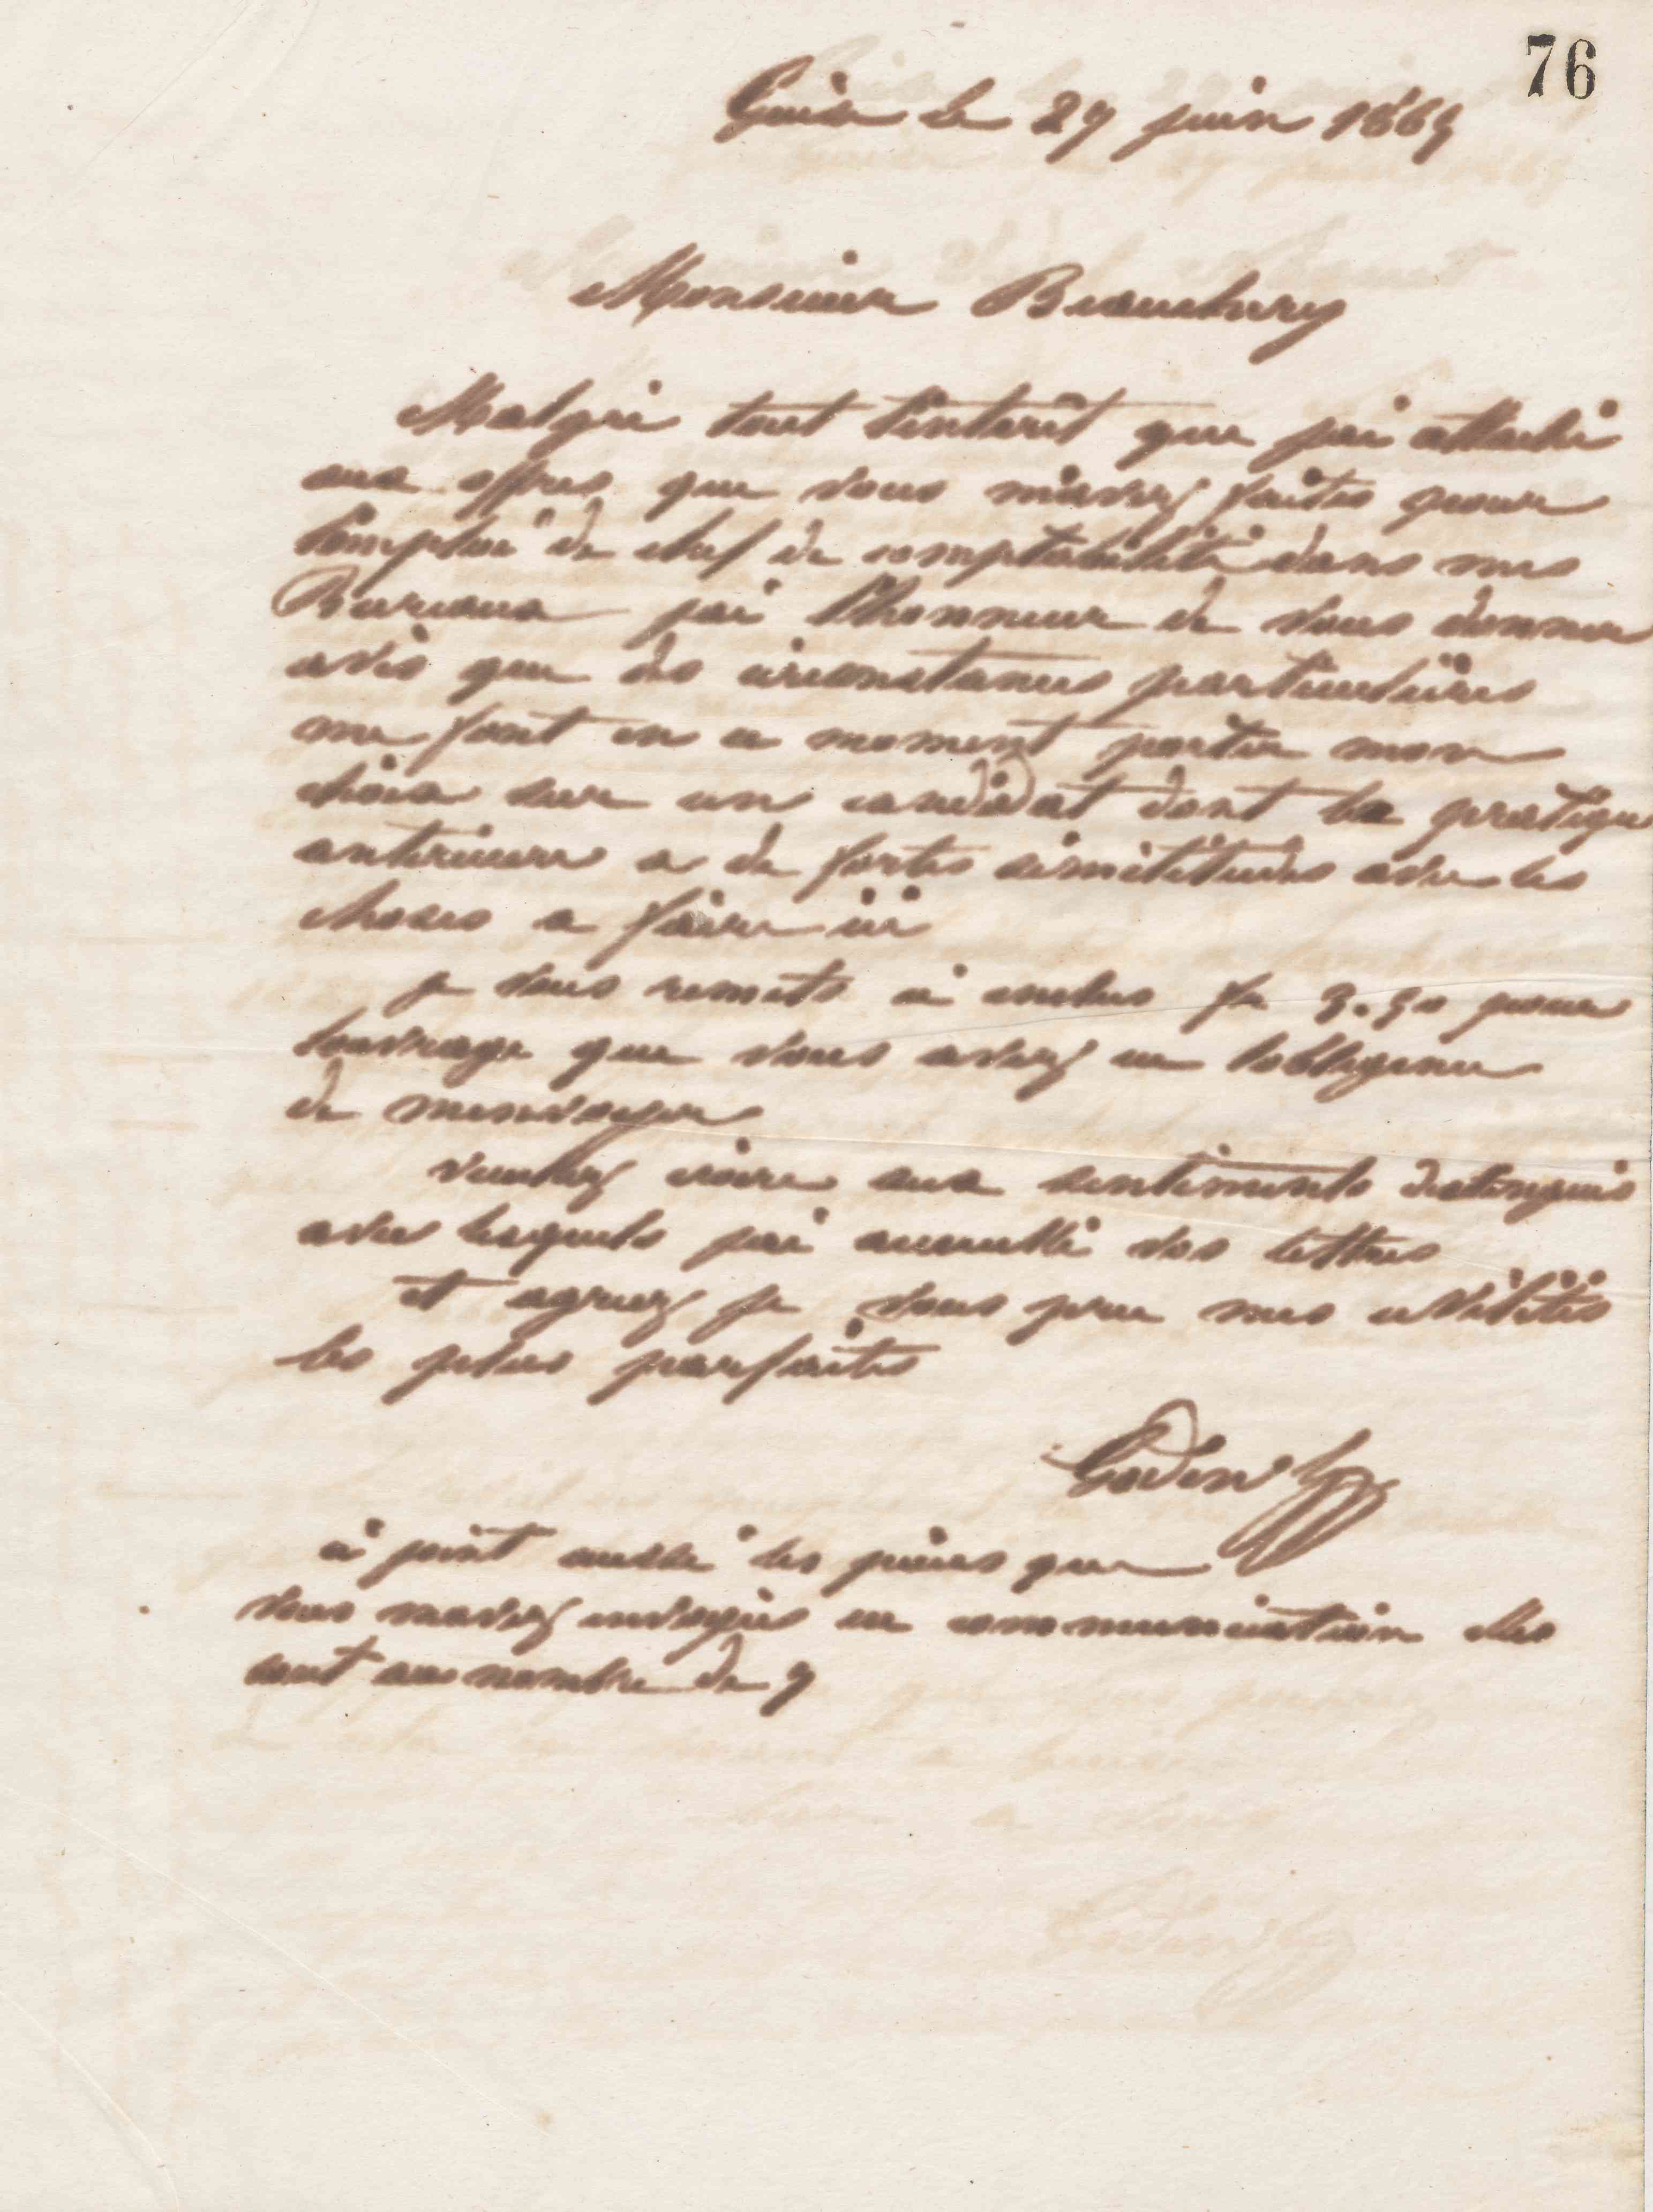 76
Guise le 29 juin 1865
Monsieur Beauchery
Malgré tout l'intérêt que jai attaché
aux offres que vous m'avez faites pour
l'emploi de chef de comptabilité dans mes
Bureaux jai l'honneur de vous donner
avis que des circonstances particulières
me font en ce moment porter mon
choix sur un candidat dont la pratique
anterieure a de fortes similitudes avec les
choses a faire ici
je vous remets ci inclus fr 3.50 pour
louvrage que vous avez eu lobligence
de menvoyer
veuillez croire aux sentiments distingués
avec lesquels jai accueilli vos lettres
et agreez je vous prie mes civilités
les plus parfaites
Godin
ci joint aussi les pièces que
vous mavez envoyées en communication elles
sont au nombre de 9